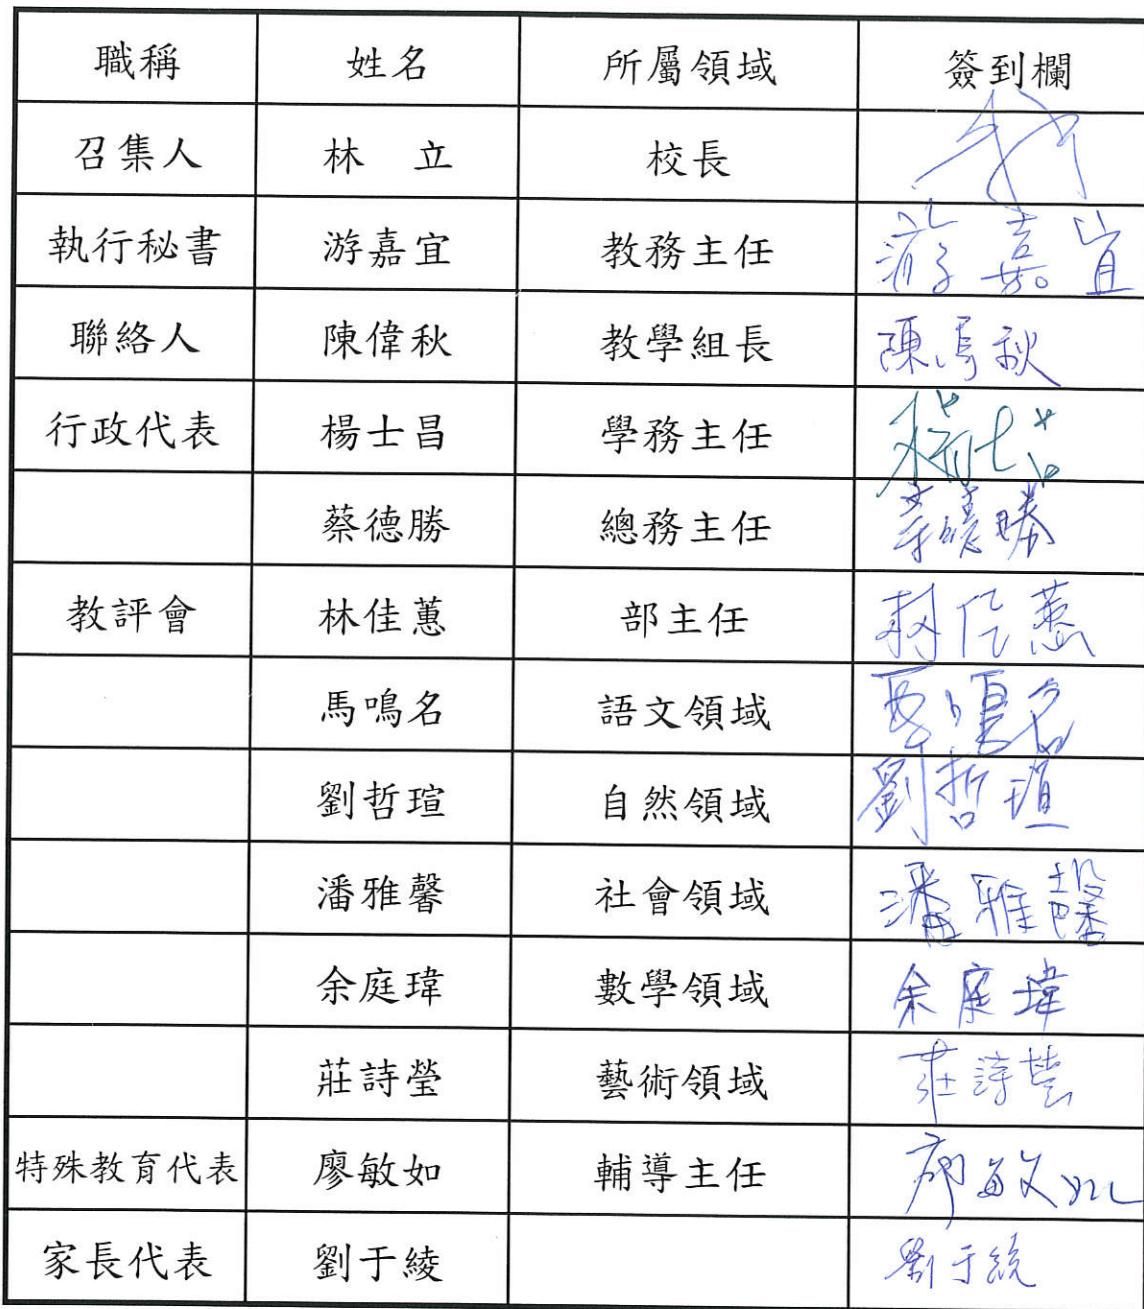 職稱 姓名 所屬領域 簽到欄
召集人 林 立 校長
執行秘書 游嘉宜 教務主任 游嘉宜
聯絡人 陳偉秋 教學組長 陳偉秋
行政代表 楊士昌 學務主任
蔡德勝 總務主任 蔡德勝
教評會 林佳蕙 部主任 林佳蕙
馬鳴名 語文領域 馬鳴名
劉哲瑄 自然領域 劉哲瑄
潘雅馨 社會領域 潘雅馨
余庭瑋 數學領域 余庭瑋
莊詩瑩 藝術領域 莊詩瑩
特殊教育代表 廖敏如 輔導主任 廖敏如
家長代表 劉于綾 劉于綾